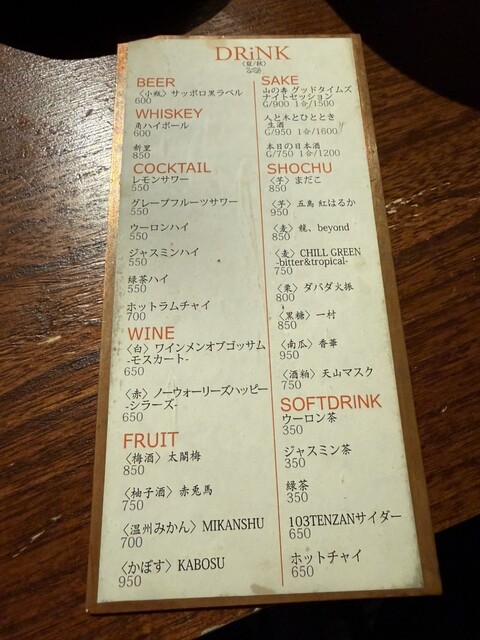 DRiNK
〈夏/秋〉
BEER
〈小瓶〉サッポロ黒ラベル
600
WHISKEY
角ハイボール
600
新里
850
COCKTAIL
レモンサワー
550
グレープフルーツサワー
550
ウーロンハイ
550
ジャスミンハイ
550
緑茶ハイ
550
ホットラムチャイ
700
WINE
〈白〉ワインメンオブゴッサム
-モスカート-
650
〈赤〉ノーウォーリーズハッピー
-シラーズ-
650
FRUIT
〈梅酒〉太閤梅
850
〈柚子酒〉赤兎馬
750
〈温州みかん〉MIKANSHU
700
〈かぼす〉KABOSU
950
SAKE
山の寿 グッドタイムズ
ナイトセッション
G/900 1合/1500
人と木とひととき
生酒
G/950 1合/1600
本日の日本酒
G/750 1合/1200
SHOCHU
〈芋〉まだこ
850
〈芋〉五島 紅はるか
950
〈麦〉龍、beyond
850
〈麦〉CHILL GREEN
-bitter&tropical-
750
〈栗〉ダバダ火振
800
〈黒糖〉一村
850
〈南瓜〉香華
950
〈酒粕〉天山マスク
750
SOFTDRINK
ウーロン茶
350
ジャスミン茶
350
緑茶
350
103TENZANサイダー
650
ホットチャイ
650